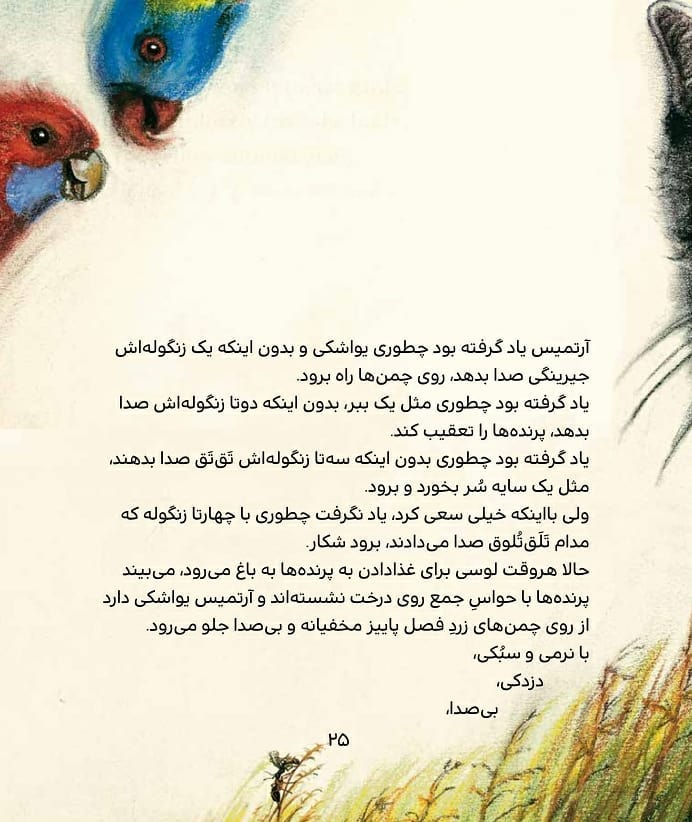 آرتمیس یاد گرفته بود چطوری یواشکی و بدون اینکه یک زنگوله‌اش
جیرینگی صدا بدهد، روی چمن‌ها راه برود.
یاد گرفته بود چطوری مثل یک ببر، بدون اینکه دوتا زنگوله‌اش صدا
بدهد، پرنده‌ها را تعقیب کند.
یاد گرفته بود چطوری بدون اینکه سه‌تا زنگوله‌اش تَق‌تَق صدا بدهند،
مثل یک سایه سُر بخورد و برود.
ولی بااینکه خیلی سعی کرد، یاد نگرفت چطوری با چهارتا زنگوله که
مدام تَلَق‌تُلوق صدا می‌دادند، برود شکار.
حالا هروقت لوسی برای غذادادن به پرنده‌ها به باغ می‌رود، می‌بیند
پرنده‌ها با حواسِ جمع روی درخت نشسته‌اند و آرتمیس یواشکی دارد
از روی چمن‌های زردِ فصل پاییز مخفیانه و بی‌صدا جلو می‌رود.
با نرمی و سبُکی،
دزدکی،
بی‌صدا،
۲۵